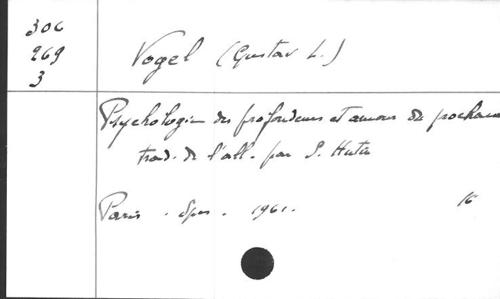 306
269
3
Vogel (Gustav L.)
Psychologie des profondeurs et amour du prochain
trad. de l'all. par S. Hutin
Paris. Spes. 1961. 16